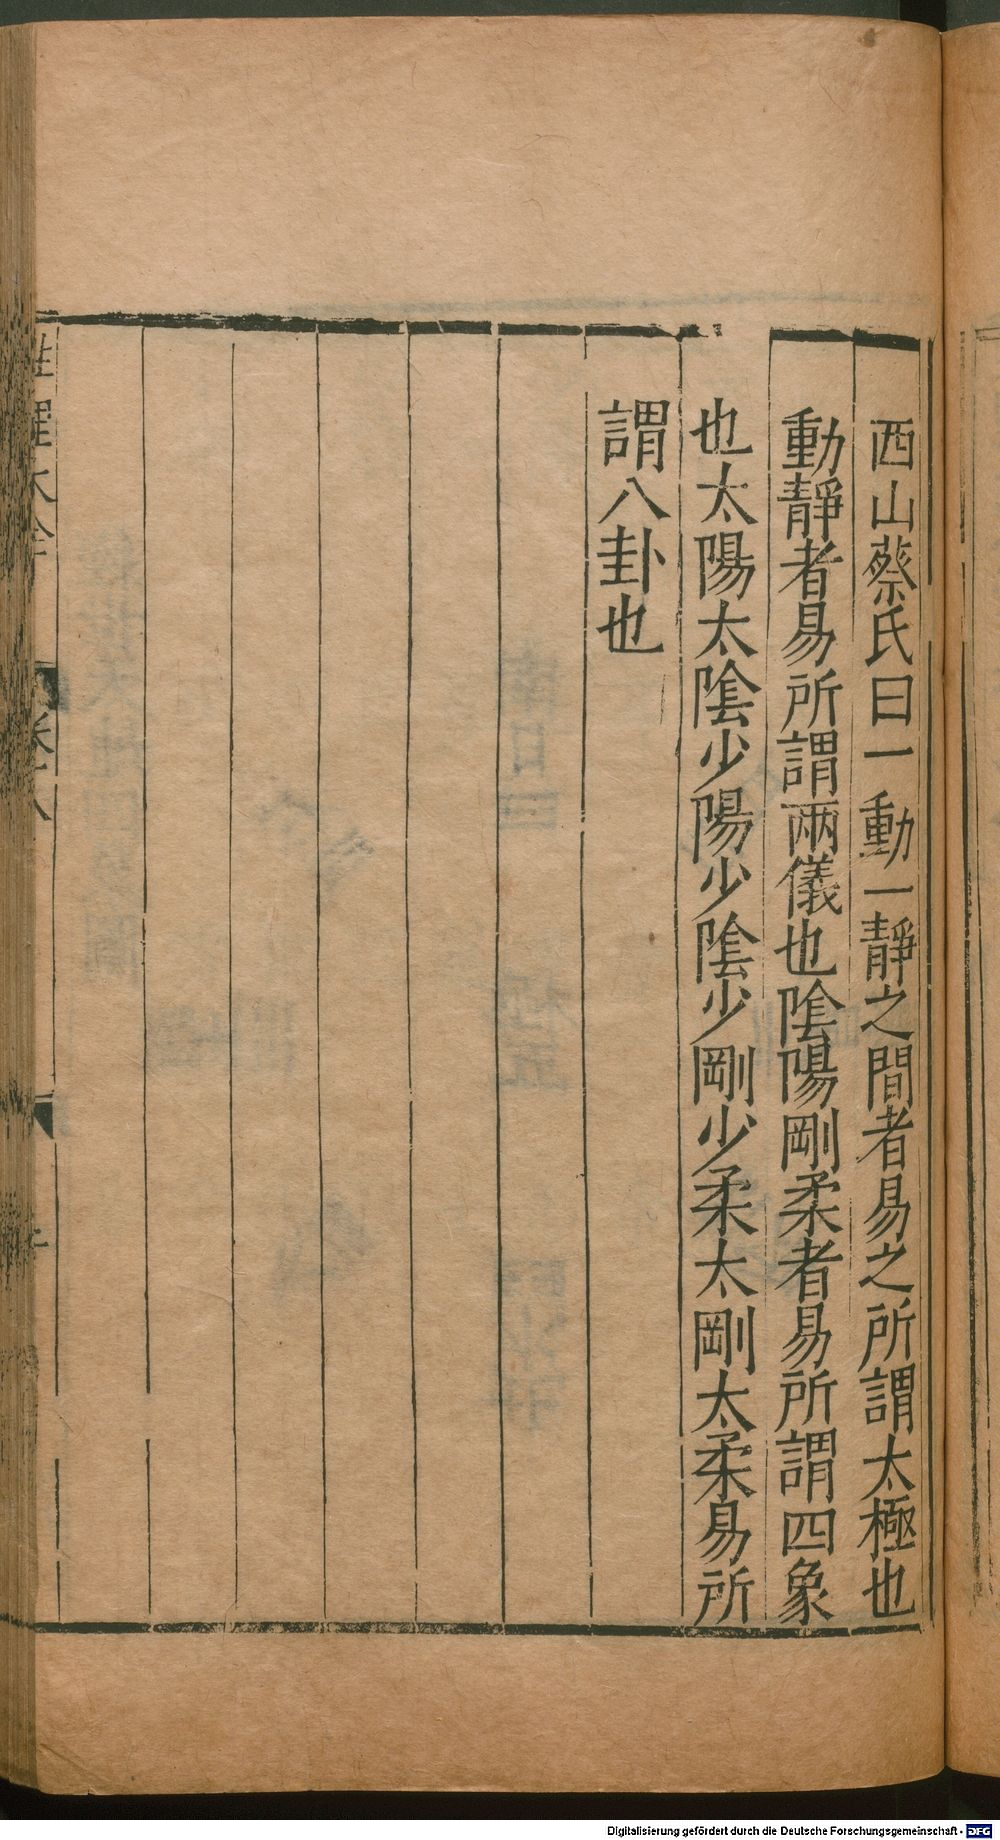 西山蔡氏曰一動一靜之間者易之所謂太極也
動靜者易所謂兩儀也陰陽剛柔者易所謂四象
也太陽太陰少陽少陰少剛少柔太剛太柔易所
謂八卦也
性理大全
Digitalisierung gefördert durch die Deutsche Forschungsgemeinschaft - DFG